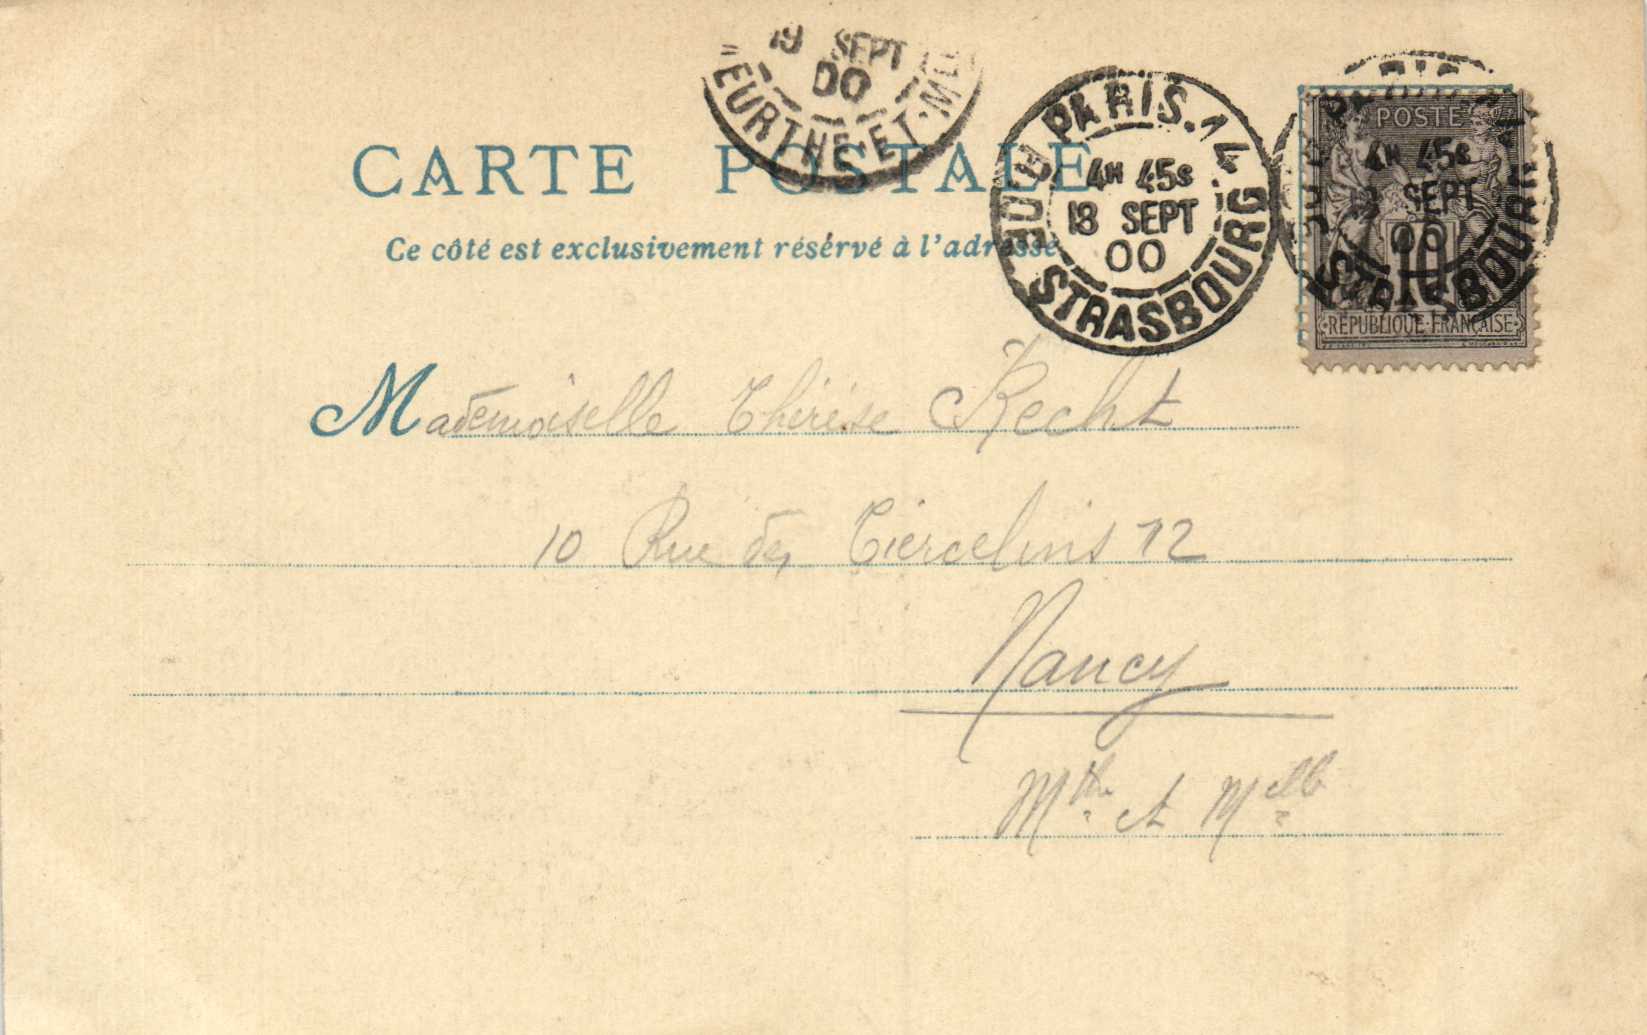 19 SEPT
00
EURTHE-ET-M
CARTE POSTALE
Ce côté est exclusivement résérvé à l'adresse
PARIS.14
4H 45S
18 SEPT
00
STRASBOURG
POSTE
4H 45S
SEPT
00
10
STRASBOURG
REPUBLIQUE FRANÇAISE
Mademoiselle Thérèse Recht
10 Rue des Tiercelins 12
Nancy
Mthe et Melle